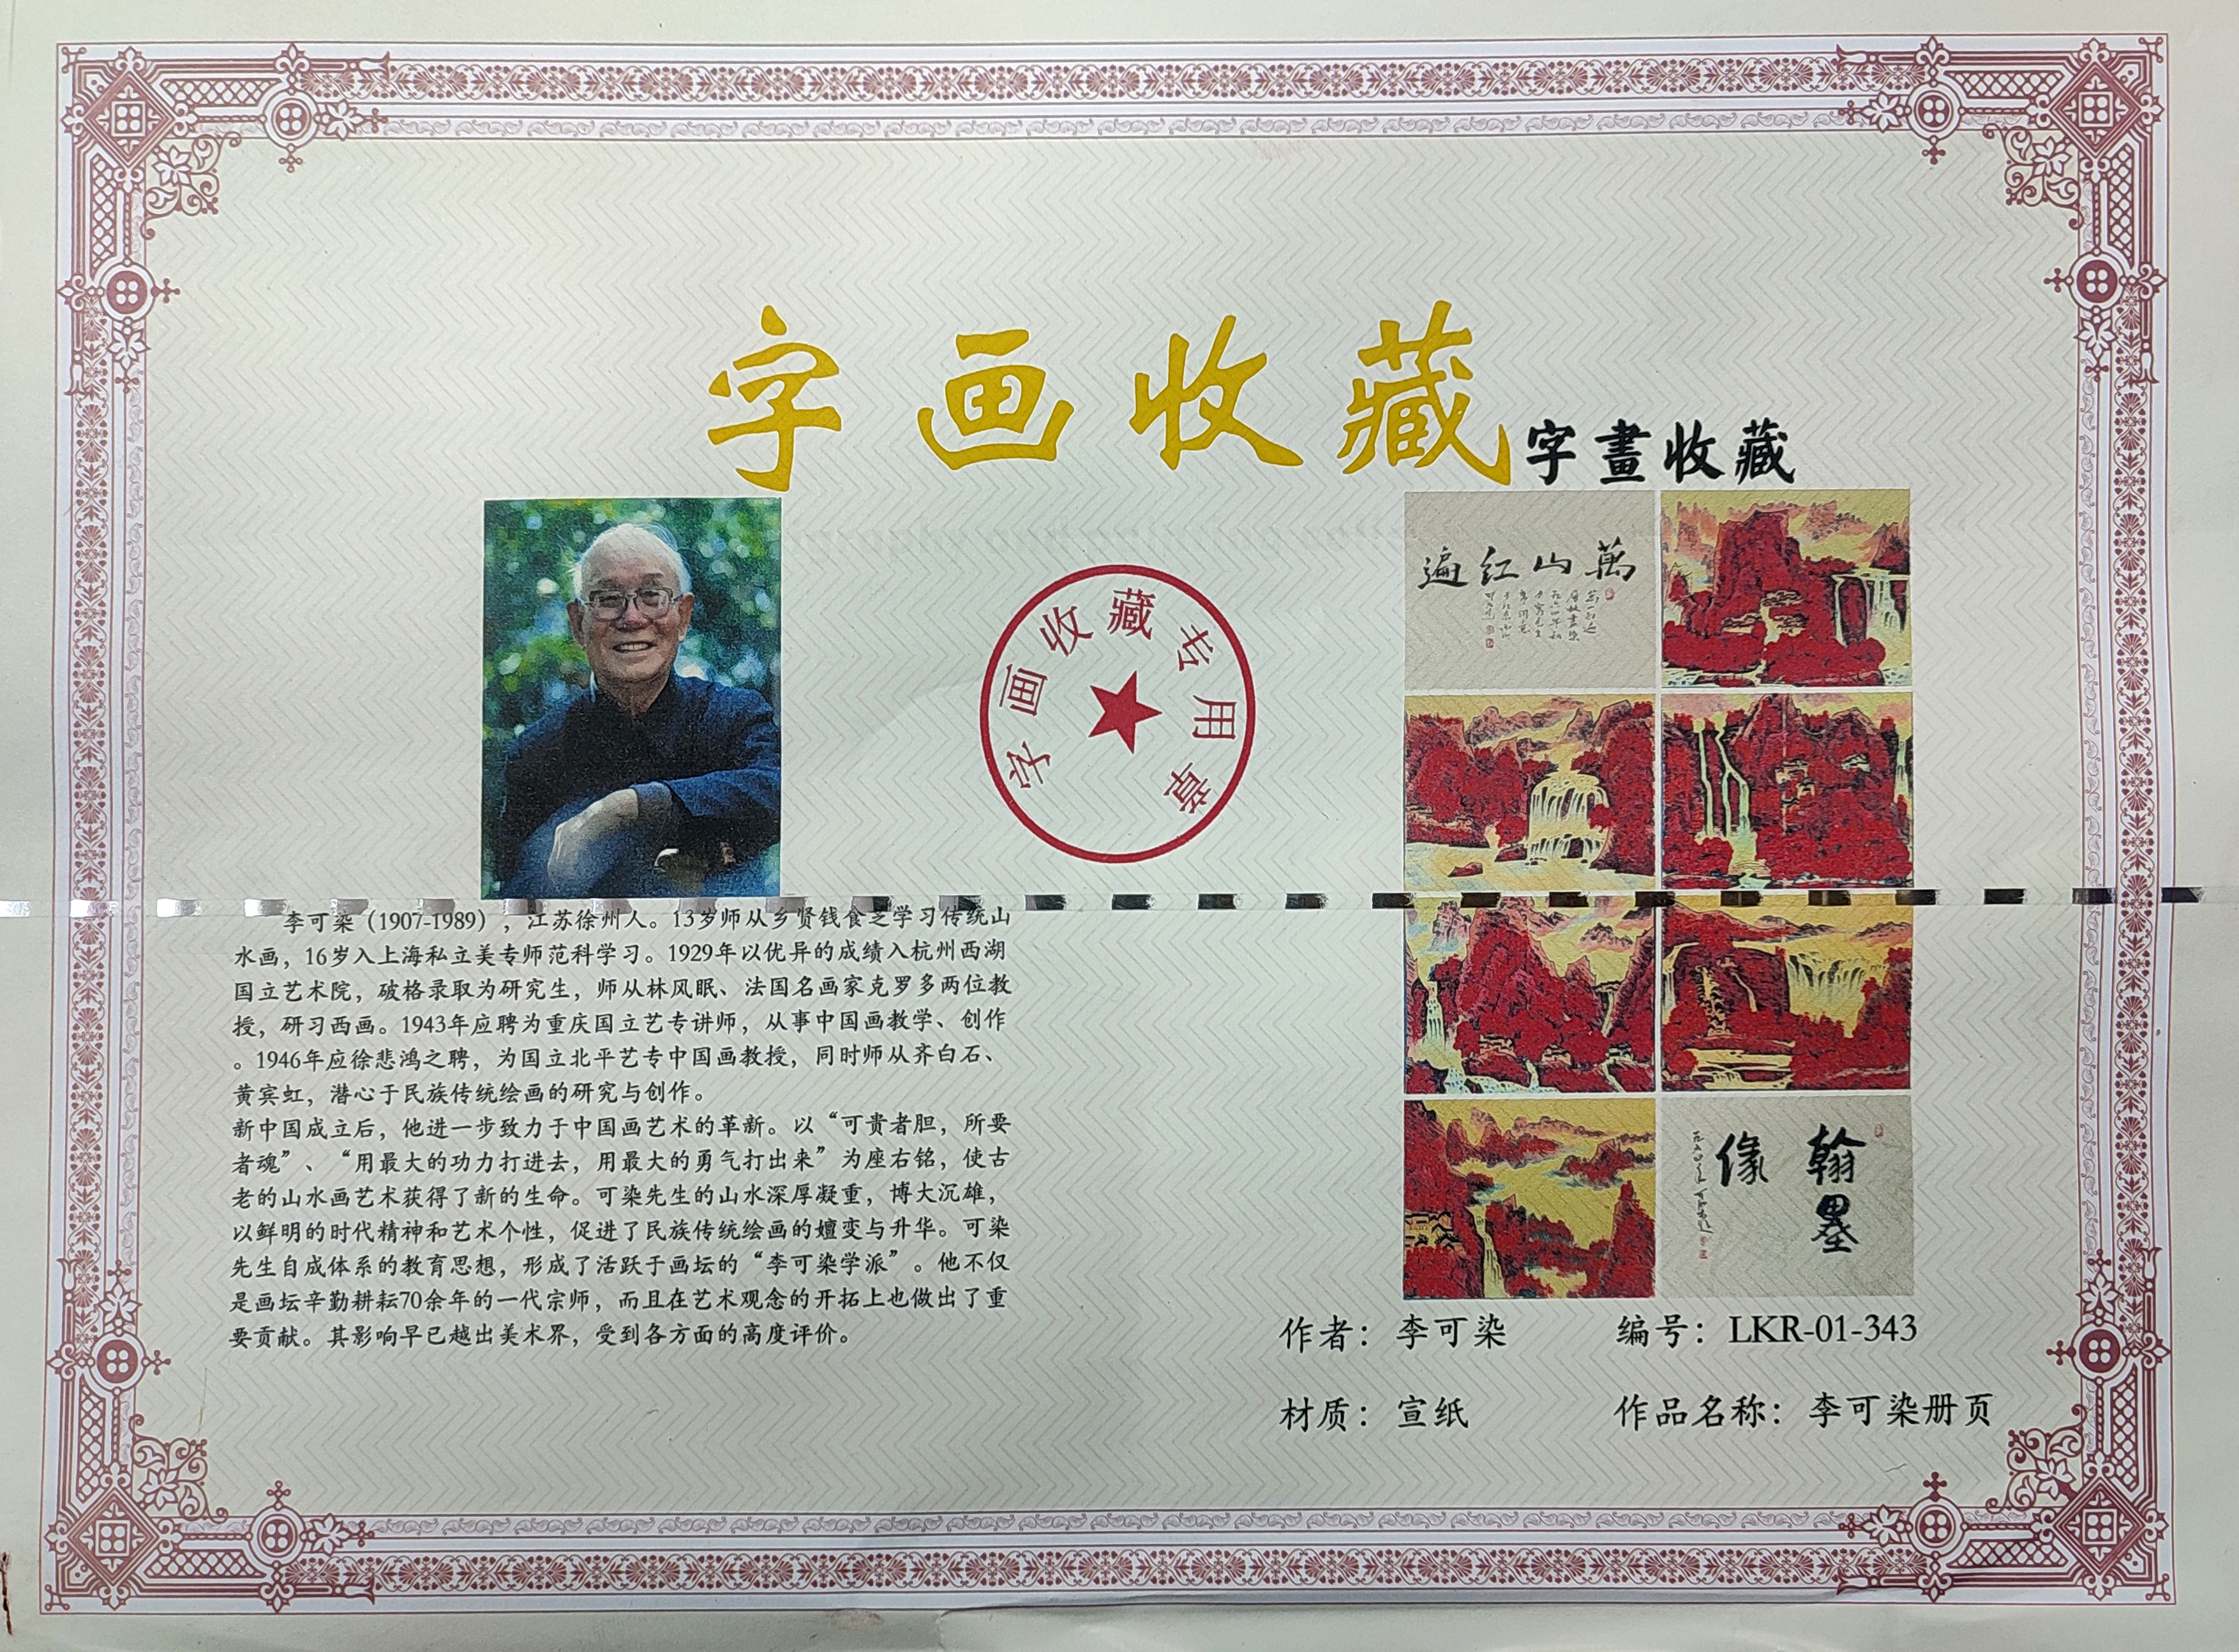 字画收藏
字畫收藏
字画收藏专用章
萬山红遍
翰墨
缘
李可染（1907-1989），江苏徐州人。13岁师从乡贤钱食芝学习传统山
水画，16岁入上海私立美专师范科学习。1929年以优异的成绩入杭州西湖
国立艺术院，破格录取为研究生，师从林风眠、法国名画家克罗多两位教
授，研习西画。1943年应聘为重庆国立艺专讲师，从事中国画教学、创作
。1946年应徐悲鸿之聘，为国立北平艺专中国画教授，同时师从齐白石、
黄宾虹，潜心于民族传统绘画的研究与创作。
新中国成立后，他进一步致力于中国画艺术的革新。以“可贵者胆，所要
者魂”、“用最大的功力打进去，用最大的勇气打出来”为座右铭，使古
老的山水画艺术获得了新的生命。可染先生的山水深厚凝重，博大沉雄，
以鲜明的时代精神和艺术个性，促进了民族传统绘画的嬗变与升华。可染
先生自成体系的教育思想，形成了活跃于画坛的“李可染学派”。他不仅
是画坛辛勤耕耘70余年的一代宗师，而且在艺术观念的开拓上也做出了重
要贡献。其影响早已越出美术界，受到各方面的高度评价。
作者：李可染 编号：LKR-01-343
材质：宣纸 作品名称：李可染册页